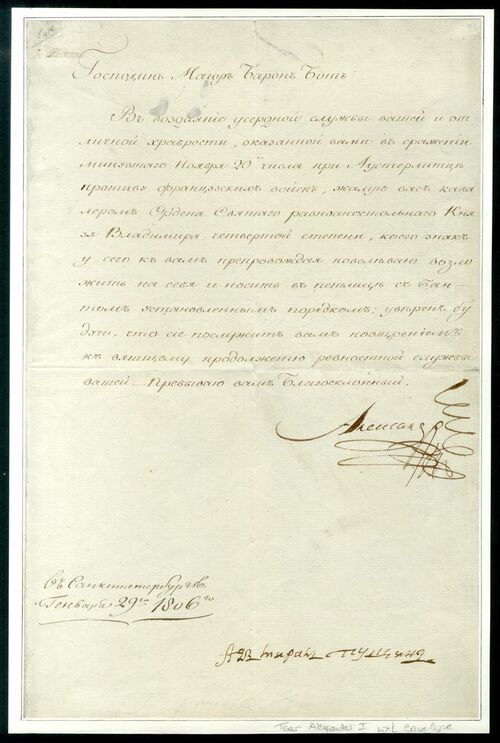 Господинъ Маіоръ Баронъ Ботъ
Въ воздаяніе усердной службы вашей и от
личной храбрости, оказанной вами въ сраженіи
минувшаго Ноября 20 числа при Аустерлицѣ
противъ французскихъ войскъ, жалую васъ кава
леромъ Ордена Святаго равноапостольнаго Кня
зя Владимира четвертой степени, коего знакъ
у сего къ вамъ препровождая повелѣваю возло
жить на себя и носить въ петлицѣ съ бан
томъ установленнымъ порядкомъ; увѣренъ бу
дучи, что сіе послужитъ вамъ поощреніемъ
къ вящщему продолженію ревностной службы
вашей. Пребываю вамъ Благосклонный.
Александръ
въ Санктпетербургѣ
Генваря 29го 1806го
Tsar Alexander I